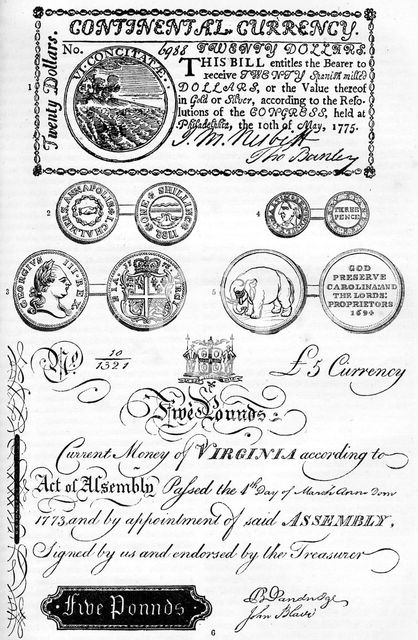 CONTINENTAL CURRENCY.
No. 6988 TWENTY DOLLARS.
Twenty Dollars.
VI CONCITATÆ.
THIS BILL entitles the Bearer to
receive TWENTY Spanish milled
DOLLARS, or the Value thereof
in Gold or Silver, according to the Reso-
lutions of the CONGRESS, held at
Philadelphia, the 10th of May, 1775.
J. M. Nesbitt
1
2
ANNAPOLIS
I. CHALMERS
ONE SHILLING
1783
4
THREE
PENCE
3
GEORGIVS III·REX
VIRGINIA
1773
5
GOD
PRESERVE
CAROLINA:AND
THE LORDS:
PROPRIETORS
1694
No 10/1321
£5 Currency
Five Pounds
Current Money of VIRGINIA according to
Act of Assembly Passed the 4th Day of March Ann Dom
1773, and by appointment of said ASSEMBLY,
Signed by us and endorsed by the Treasurer
Five Pounds
John Blair
6